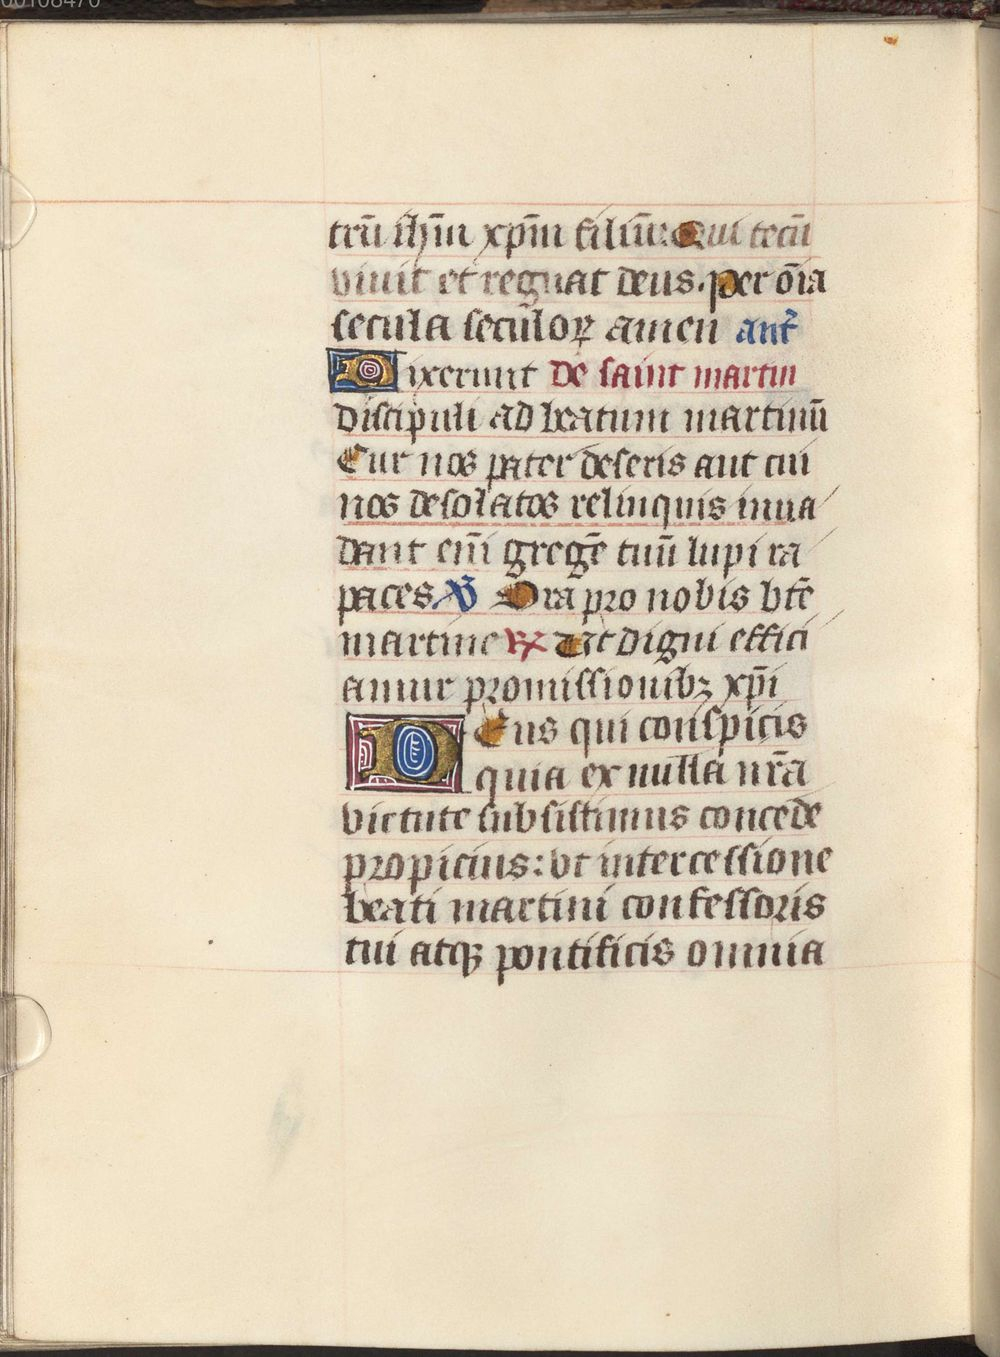 00108470
trū ihm̄ xpm̄ filiū. Qui tecū
viuit et regnat deus. per oīa
secula seculoꝝ amen ant̄
Dixerunt de saint martin
discipuli ad beatum martinū
Cur nos pater deseris aut cui
nos desolatos relinquis inua
dant eni̅ gregē tuū lupi ra
paces. ℣ Ora pro nobis bt̄e
martine ℟ Ut digni effici
amur promissionibꝫ xp̄i
Deus qui conspicis
quia ex nulla nr̄a
virtute subsistimus concede
propicius: vt intercessione
beati martini confessoris
tui atqꝫ pontificis omnia